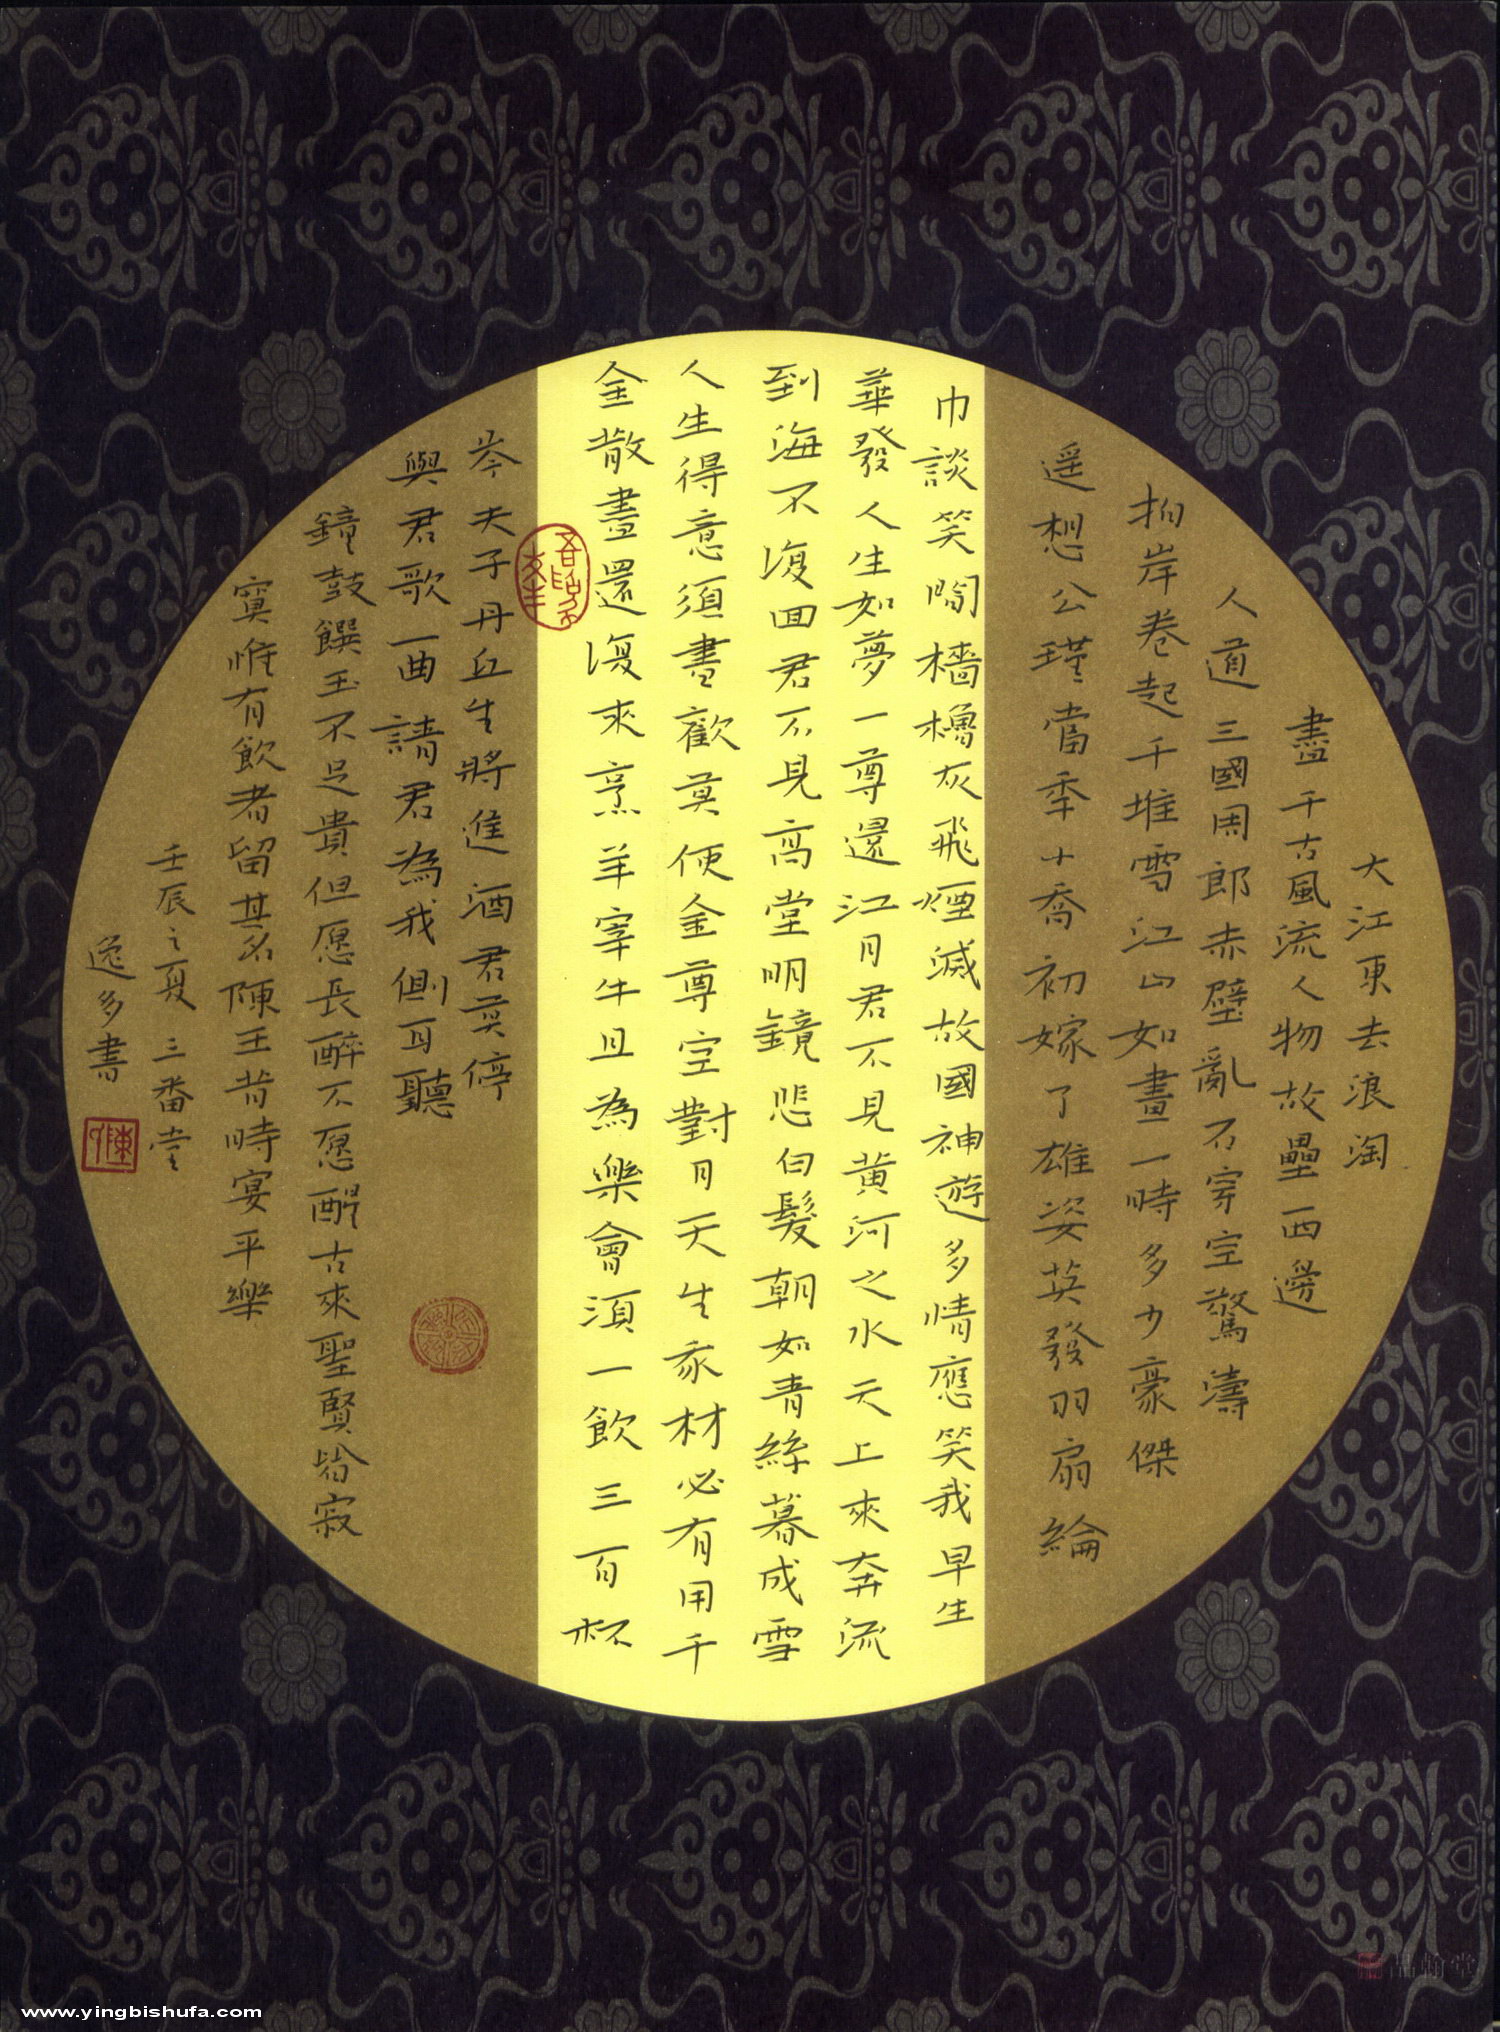 大江東去浪淘
盡千古風流人物故壘西邊
人道三國周郎赤壁亂石穿空驚濤
拍岸卷起千堆雪江山如畫一時多少豪傑
遥想公瑾當年小喬初嫁了雄姿英發羽扇綸
巾談笑間檣櫓灰飛煙滅故國神遊多情應笑我早生
華發人生如夢一尊還江月君不見黄河之水天上來奔流
到海不復回君不見高堂明鏡悲白髮朝如青絲暮成雪
人生得意須盡歡莫使金尊空對月天生我材必有用千
金散盡還復來烹羊宰牛且為樂會須一飲三百杯
岑夫子丹丘生將進酒君莫停
與君歌一曲請君為我側耳聽
鐘鼓饌玉不足貴但愿長醉不愿醒古來聖賢皆寂
寞惟有飲者留其名陳王昔時宴平樂
壬辰之夏三番堂
逸多書
陳
品翰堂
www.yingbishufa.com